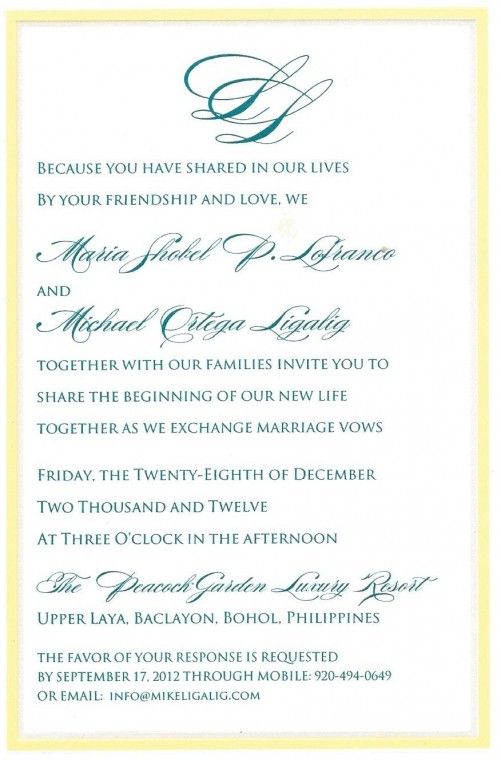 LL
BECAUSE YOU HAVE SHARED IN OUR LIVES
BY YOUR FRIENDSHIP AND LOVE, WE
Maria Shobel P. Lofranco
AND
Michael Ortega Ligalig
TOGETHER WITH OUR FAMILIES INVITE YOU TO
SHARE THE BEGINNING OF OUR NEW LIFE
TOGETHER AS WE EXCHANGE MARRIAGE VOWS
FRIDAY, THE TWENTY-EIGHTH OF DECEMBER
TWO THOUSAND AND TWELVE
AT THREE O'CLOCK IN THE AFTERNOON
The Peacock Garden Luxury Resort
UPPER LAYA, BACLAYON, BOHOL, PHILIPPINES
THE FAVOR OF YOUR RESPONSE IS REQUESTED
BY SEPTEMBER 17, 2012 THROUGH MOBILE: 920-494-0649
OR EMAIL: INFO@MIKELIGALIG.COM